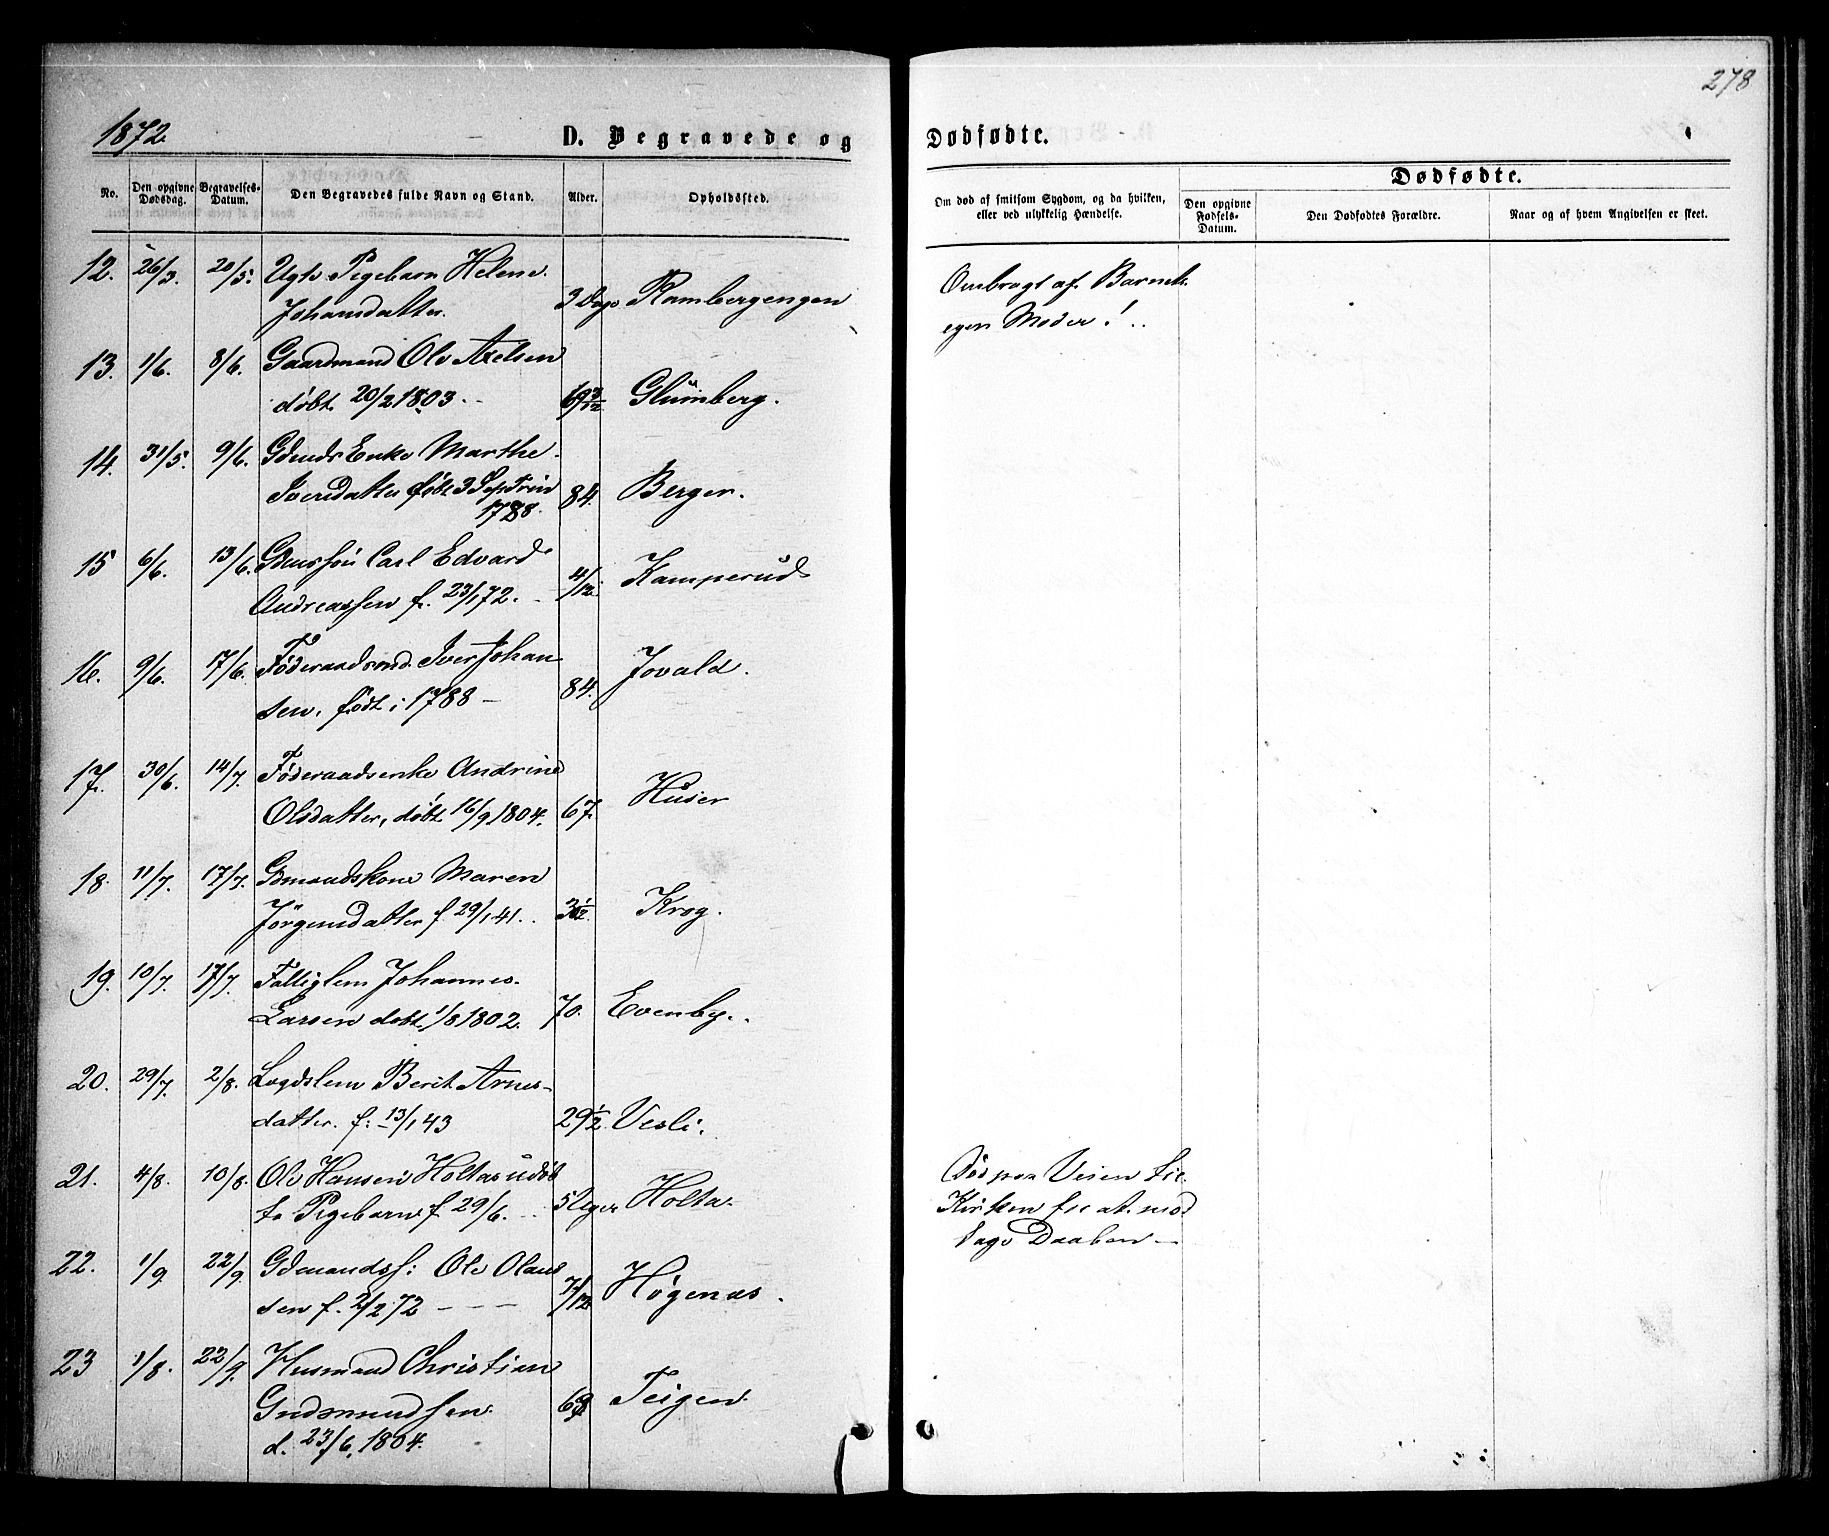 278
1872.
D. Begravede og Dødfødte.
No. Den opgivne Dødsdag. Begravelses-Datum. Den Begravedes fulde Navn og Stand. Alder. Opholdssted. Om død af smitsom Sygdom, og da hvilken, eller ved ulykkelig Hændelse.
Dødfødte.
Den opgivne Fødsels-Datum. Den Dødfødtes Forældre. Naar og af hvem Angivelsen er skeet.
12. 26/3. 20/5. Ugte Pigebarn Helene Ombragt af Barnets
Johansdatter. 3 Dage Rambergengen egen Moder!
13. 1/6. 8/6. Gaardmand Ole Axelsen
døbt 20/2 1803. 69 3/12 Glumberg.
14. 31/5. 9/6. Gdmds Enke Marthe
Iversdatter døbt 3 Sep Trin 84. Berger.
1788.
15 6/6. 13/6. Gdmssøn Carl Edvard
Andreassen f. 23/1 72. 4/12. Kamperud
16. 9/6. 17/6. Føderaadsmd. Iver Johan
sen, født i 1788 84. Jovald.
17. 30/6. 14/7. Føderaadsenke Andrine
Olsdatter, døbt 16/9 1804. 67. Huser
18. 11/7. 17/7. Gdmandskone Maren
Jørgensdatter f. 29/1 41. Krog.
19. 10/7. 17/7. Fattiglem Johannes
Larsen døbt 1/8 1802. 70. Evenby.
20. 29/7. 2/8. Lægdslem Berit Arnes-
datter. f. 13/1 43 29 1/2 Vesli.
21. 4/8. 10/8. Ole Hansen Holtas udøb Død paa Veien til
te Pigebarn f. 29/6. 5 Uger Holta. Kirken for at mod
tage Daaben
22. 1/9. 22/9. Gdmandss: Ole Olaus
sen f. 2/2 72 7/12 Høgenæs.
23 1/8. 22/9. Husmand Christian
Gudmundsen Teigen
d. 23/6. 1804.